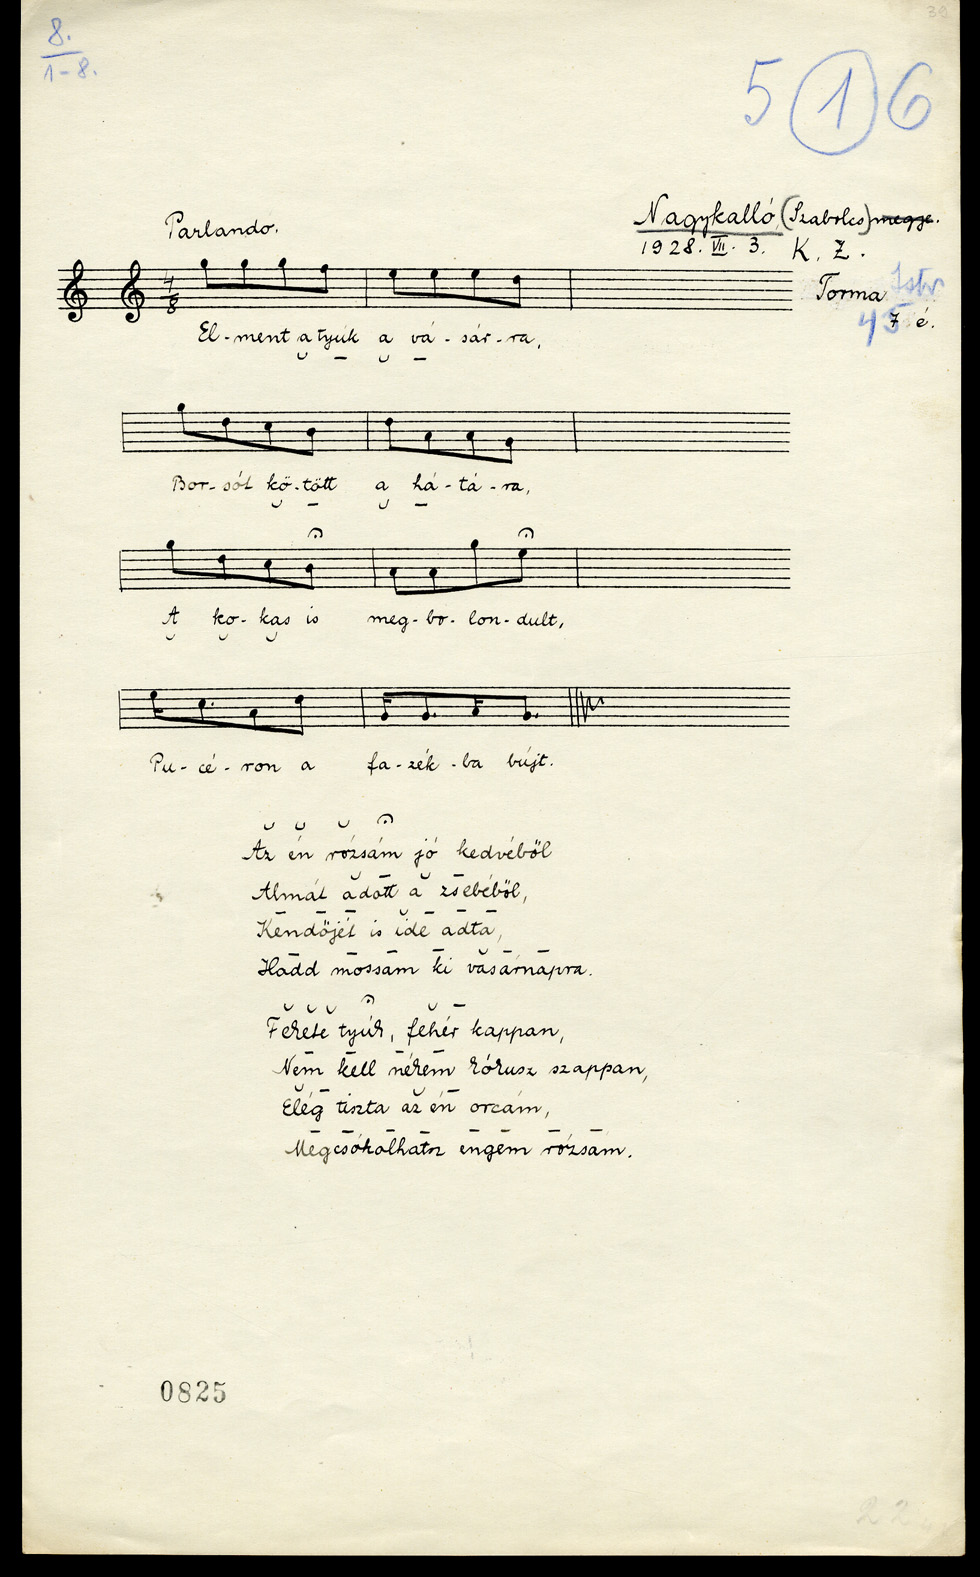 39
8.
1-8.
5 1 6
Parlando.
Nagykalló, (Szabolcs) megye.
1928. VII. 3. K. Z.
Torma Istv
45 7 é.
4
8
El-ment a tyúk a vá-sár-ra,
Bor-sót kö-tött a há-tá-ra,
A ko-kas is meg-bo-lon-dult,
Pu-cé-ron a fa-zék-ba bújt.
Az én rózsám jó kedvéből
Almát adott a zsebéből,
Kendőjét is ide adta,
Hadd mossam ki vasárnapra.
Fekete tyúk, fehér kappan,
Nem kell nékem kókusz szappan,
Elég tiszta az én orcám,
Megcsókolhatsz engem rózsám.
0825